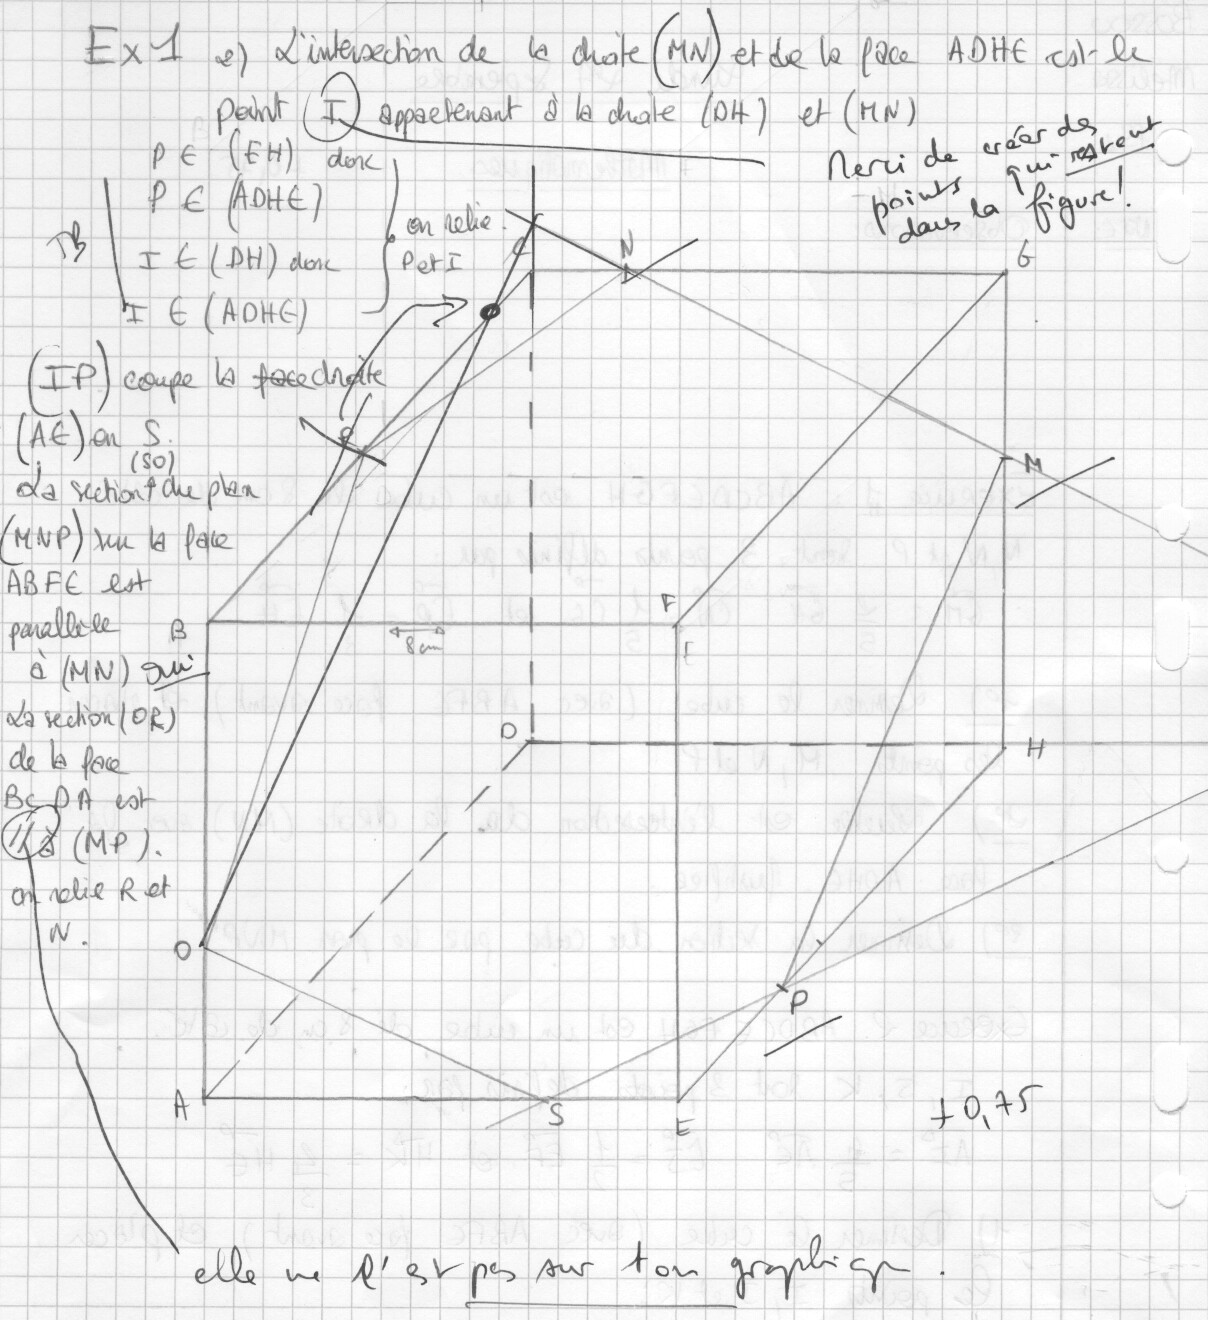 Ex 1 2) L'intersection de la droite (MN) et de la face ADHE est le
point (I) appartenant à la droite (DH) et (MN)
Merci de créer des
points qui restent
dans la figure!
P ∈ (EH) donc
P ∈ (ADHE)
I ∈ (DH) donc
I ∈ (ADHE)
TB
on relie
P et I
(IP) coupe la face droite
(AE) en S.
(SO)
La section du plan
(MNP) sur la face
ABFE est
parallèle
à (MN) oui
La section (OR)
de la face
BCDA est
// à (MP).
on relie R et
N.
C
N
G
R
M
B
F
E
8cm
D
H
O
P
A
S
E
+0,75
elle ne l'est pas sur ton graphique.